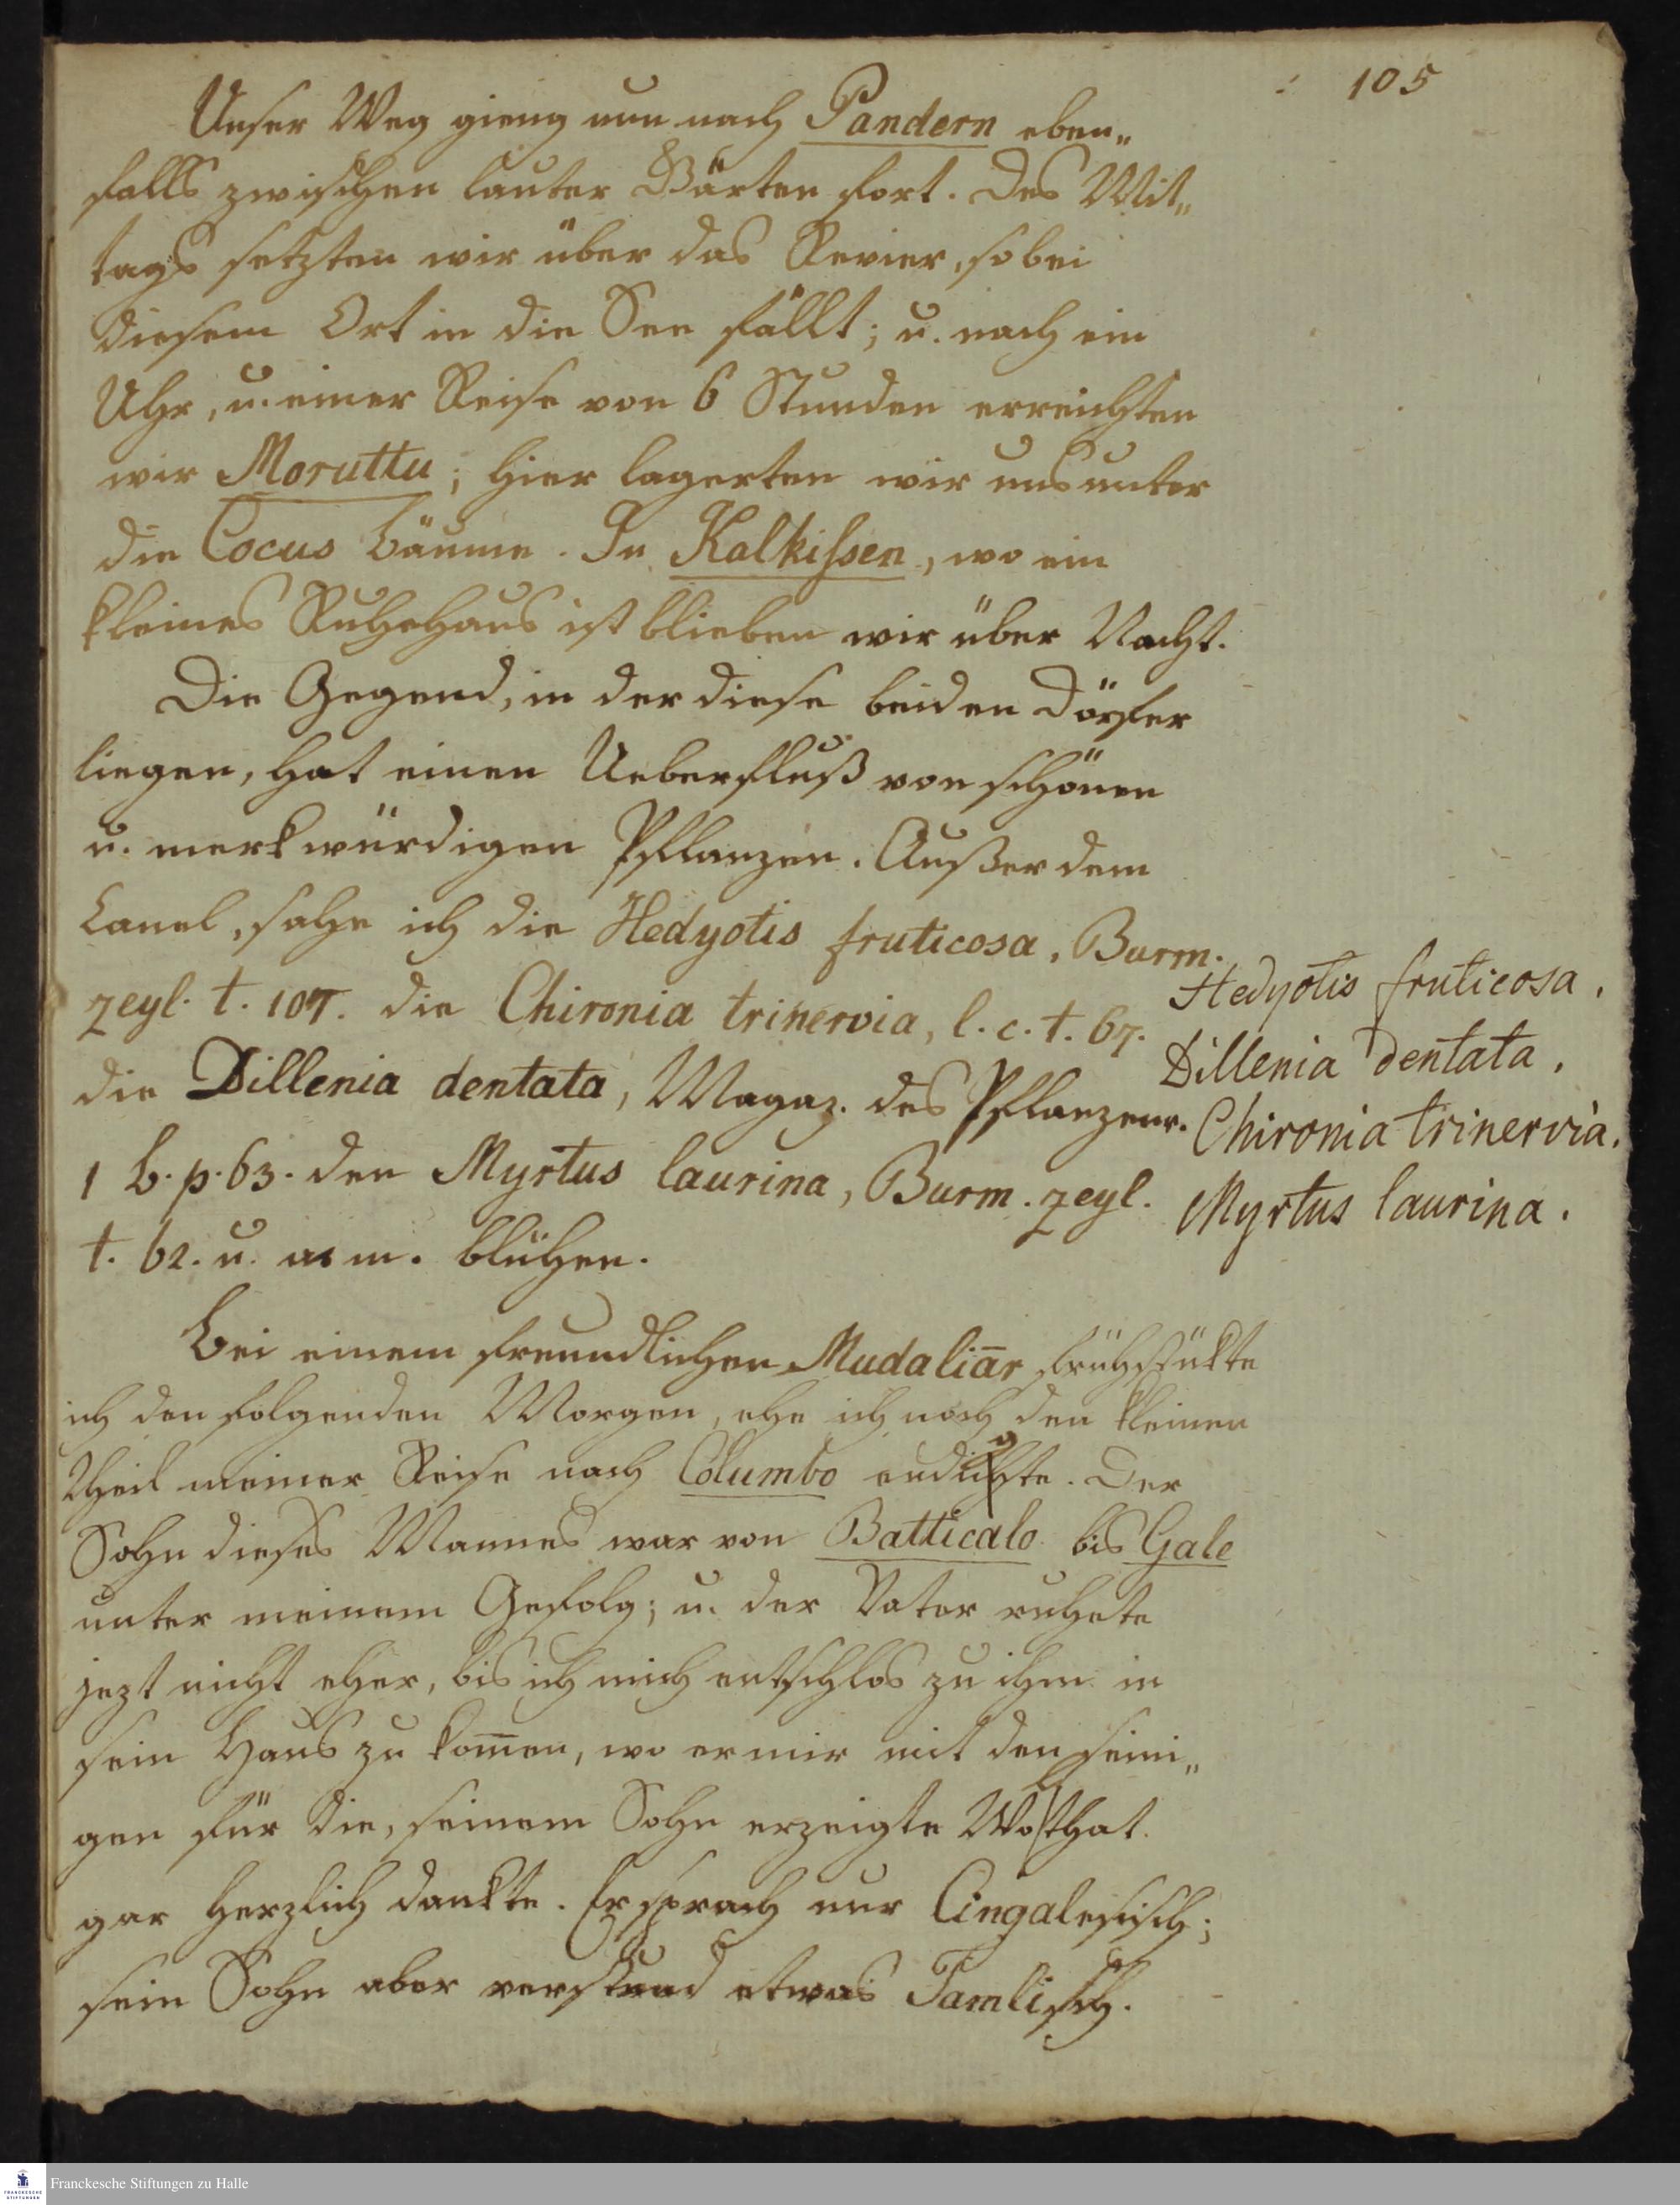 105
Unser Weg gieng nun nach Pandern eben„
falls zwischen lauter Gärten fort. Des Mit„
tags setzten wir über das Revier, so bei
diesem Ort in die See fällt; u. nach ein
Uhr, u. einer Reise von 6 Stunden erreichten
wir Moruttu; hier lagerten wir uns unter
die Cocus bäume. In Kalkissen, wo ein
kleines Ruhehaus ist blieben wir über Nacht.
Die Gegend, in der diese beiden Dörfer
liegen, hat einen Ueberfluß von schönen
u. merkwürdigen Pflanzen. Außer dem
Canel, sahe ich die Hedyotis fruticosa, Burm.
zeyl. t. 107. die Chironia trinervia, l. c. t. 67.
die Dillenia dentata, Magaz. des Pflanzenr.
1 B. p. 63. den Myrtus laurina, Burm. zeyl.
t. 62. u. a. m. blühen.
Hedyotis fruticosa.
Dillenia dentata.
Chironia trinervia.
Myrtus laurina.
Bei einem freundlichen Mudaliār frühstükte
ich den folgenden Morgen, ehe ich noch den kleinen
Theil meiner Reise nach Columbo endigte. Der
Sohn dieses Mannes war von Batticalo bis Gale
unter meinem Gefolg; u. der Vater ruhete
jezt nicht eher, bis ich mich entschlos zu ihm in
sein Haus zu kom̄en, wo er mir mit den seini„
gen für die, seinem Sohn erzeigte Wolthat
gar herzlich dankte. Er sprach nur Cingalesisch;
sein Sohn aber verstund etwas Tamlisch.
Franckesche Stiftungen zu Halle
FRANCKESCHE
STIFTUNGEN